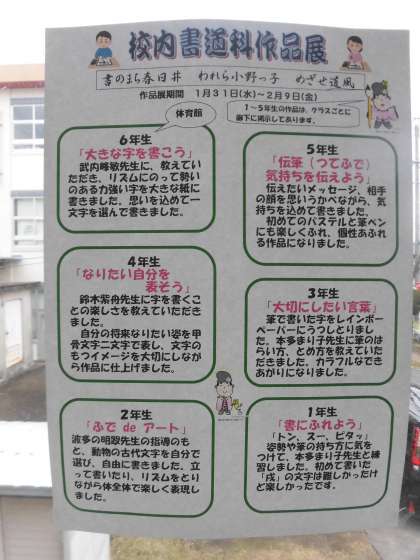 校内書道科作品展
書のまち春日井　われら小野っ子　めざせ道風
作品展期間　1月31日(水)～2月9日(金)
1～5年生の作品は、クラスごとに
廊下に掲示してあります。
体育館
6年生
「大きな字を書こう」
武内峰敏先生に、教えていただき、リズムにのって勢い
のある力強い字を大きな紙に
書きました。思いを込めて一
文字を選んで書きました。
5年生
「伝筆(つてふで)
気持ちを伝えよう」
伝えたいメッセージ、相手
の顔を思いうかべながら、気
持ちを込めて書きました。
初めてのパステルと筆ペン
にも楽しくふれ、個性あふれ
る作品になりました。
4年生
「なりたい自分を
表そう」
鈴木紫舟先生に字を書くこ
との楽しさを教えていただき
ました。
自分の将来なりたい姿を甲
骨文字二文字で表し、文字の
もつイメージを大切にしなが
ら作品に仕上げました。
3年生
「大切にしたい言葉」
筆で書いた字をレインボー
ペーパーにうつしとりまし
た。本多まり子先生に筆のは
らい方、とめ方を教えていた
だきました。カラフルなでき
あがりになりました。
2年生
「ふで de アート」
波多野明翠先生の指導のも
と、動物の古代文字を自分で
選び、自由に書きました。立
って書いたり、リズムをとり
ながら体全体で楽しく表現し
ました。
1年生
「書にふれよう」
「トン、スー、ピタッ」
姿勢や筆の持ち方に気を
つけて、本多まり子先生と練
習しました。初めて書いた
「戌」の文字は難しかったけ
ど楽しかったです。